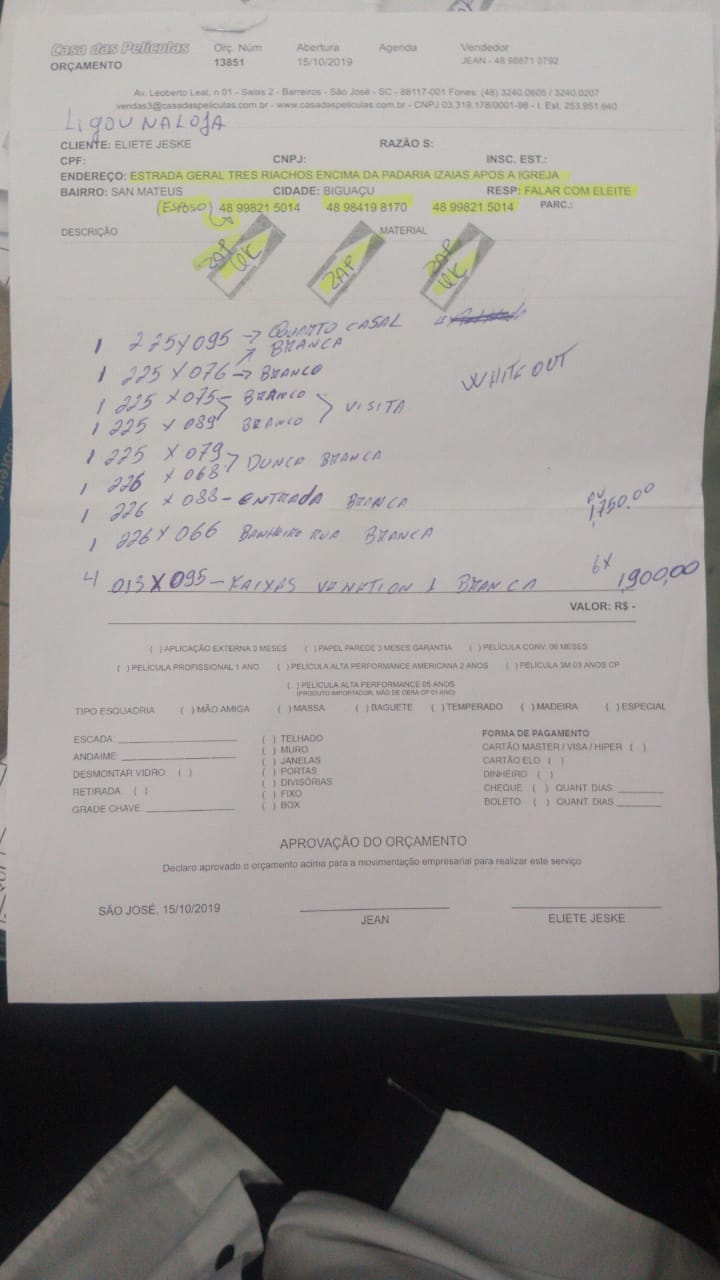 Casa das Películas Orç. Núm Abertura Agenda Vendedor
ORÇAMENTO 13851 15/10/2019 JEAN - 48 98871 0792
Av. Leoberto Leal, n 01 - Salas 2 - Barreiros - São José - SC - 88117-001 Fones: (48) 3240.0605 / 3240.0207
vendas3@casadaspeliculas.com.br - www.casadaspeliculas.com.br - CNPJ 03.319.178/0001-98 - I. Est. 253.951.640
LIGOU NA LOJA
CLIENTE: ELIETE JESKE RAZÃO S:
CPF: CNPJ: INSC. EST.:
ENDEREÇO: ESTRADA GERAL TRES RIACHOS ENCIMA DA PADARIA IZAIAS APOS A IGREJA
BAIRRO: SAN MATEUS CIDADE: BIGUAÇU RESP: FALAR COM ELEITE
(ESPOSO) 48 99821 5014 48 98419 8170 48 99821 5014 PARC.:
DESCRIÇÃO MATERIAL
ZAP ZAP ZAP
OK OK
1 225X095 → QUARTO CASAL
BRANCA
1 225 X 076 → BRANCO WHITE OUT
1 225 X 075 - BRANCO
VISITA
1 225 X 089 BRANCO
1 225 X 079
BRANCA
1 226 X 068
1 226 X 088 - ENTRADA BRANCA 1,750.00
1 226 X 066 BANHEIRO RUA BRANCA
4 013 X 095 - BRANCA 6X 1,900,00
VALOR: R$ -
( ) APLICAÇÃO EXTERNA 3 MESES ( ) PAPEL PAREDE 3 MESES GARANTIA ( ) PELÍCULA CONV. 06 MESES
( ) PELÍCULA PROFISSIONAL 1 ANO ( ) PELÍCULA ALTA PERFORMANCE AMERICANA 2 ANOS ( ) PELÍCULA 3M 03 ANOS CP
( ) PELÍCULA ALTA PERFORMANCE 05 ANOS
(PRODUTO IMPORTADOR, MÃO DE OBRA CP 01 ANO)
TIPO ESQUADRIA ( ) MÃO AMIGA ( ) MASSA ( ) BAGUETE ( ) TEMPERADO ( ) MADEIRA ( ) ESPECIAL
ESCADA: ( ) TELHADO FORMA DE PAGAMENTO
ANDAIME: ( ) MURO CARTÃO MASTER / VISA / HIPER ( )
DESMONTAR VIDRO: ( ) ( ) JANELAS CARTÃO ELO ( )
RETIRADA: ( ) ( ) PORTAS DINHEIRO ( )
( ) DIVISÓRIAS CHEQUE ( ) QUANT. DIAS:
GRADE CHAVE: ( ) FIXO BOLETO ( ) QUANT. DIAS
( ) BOX
APROVAÇÃO DO ORÇAMENTO
Declaro aprovado o orçamento acima para a movimentação empresarial para realizar este serviço
SÃO JOSÉ, 15/10/2019
JEAN ELIETE JESKE